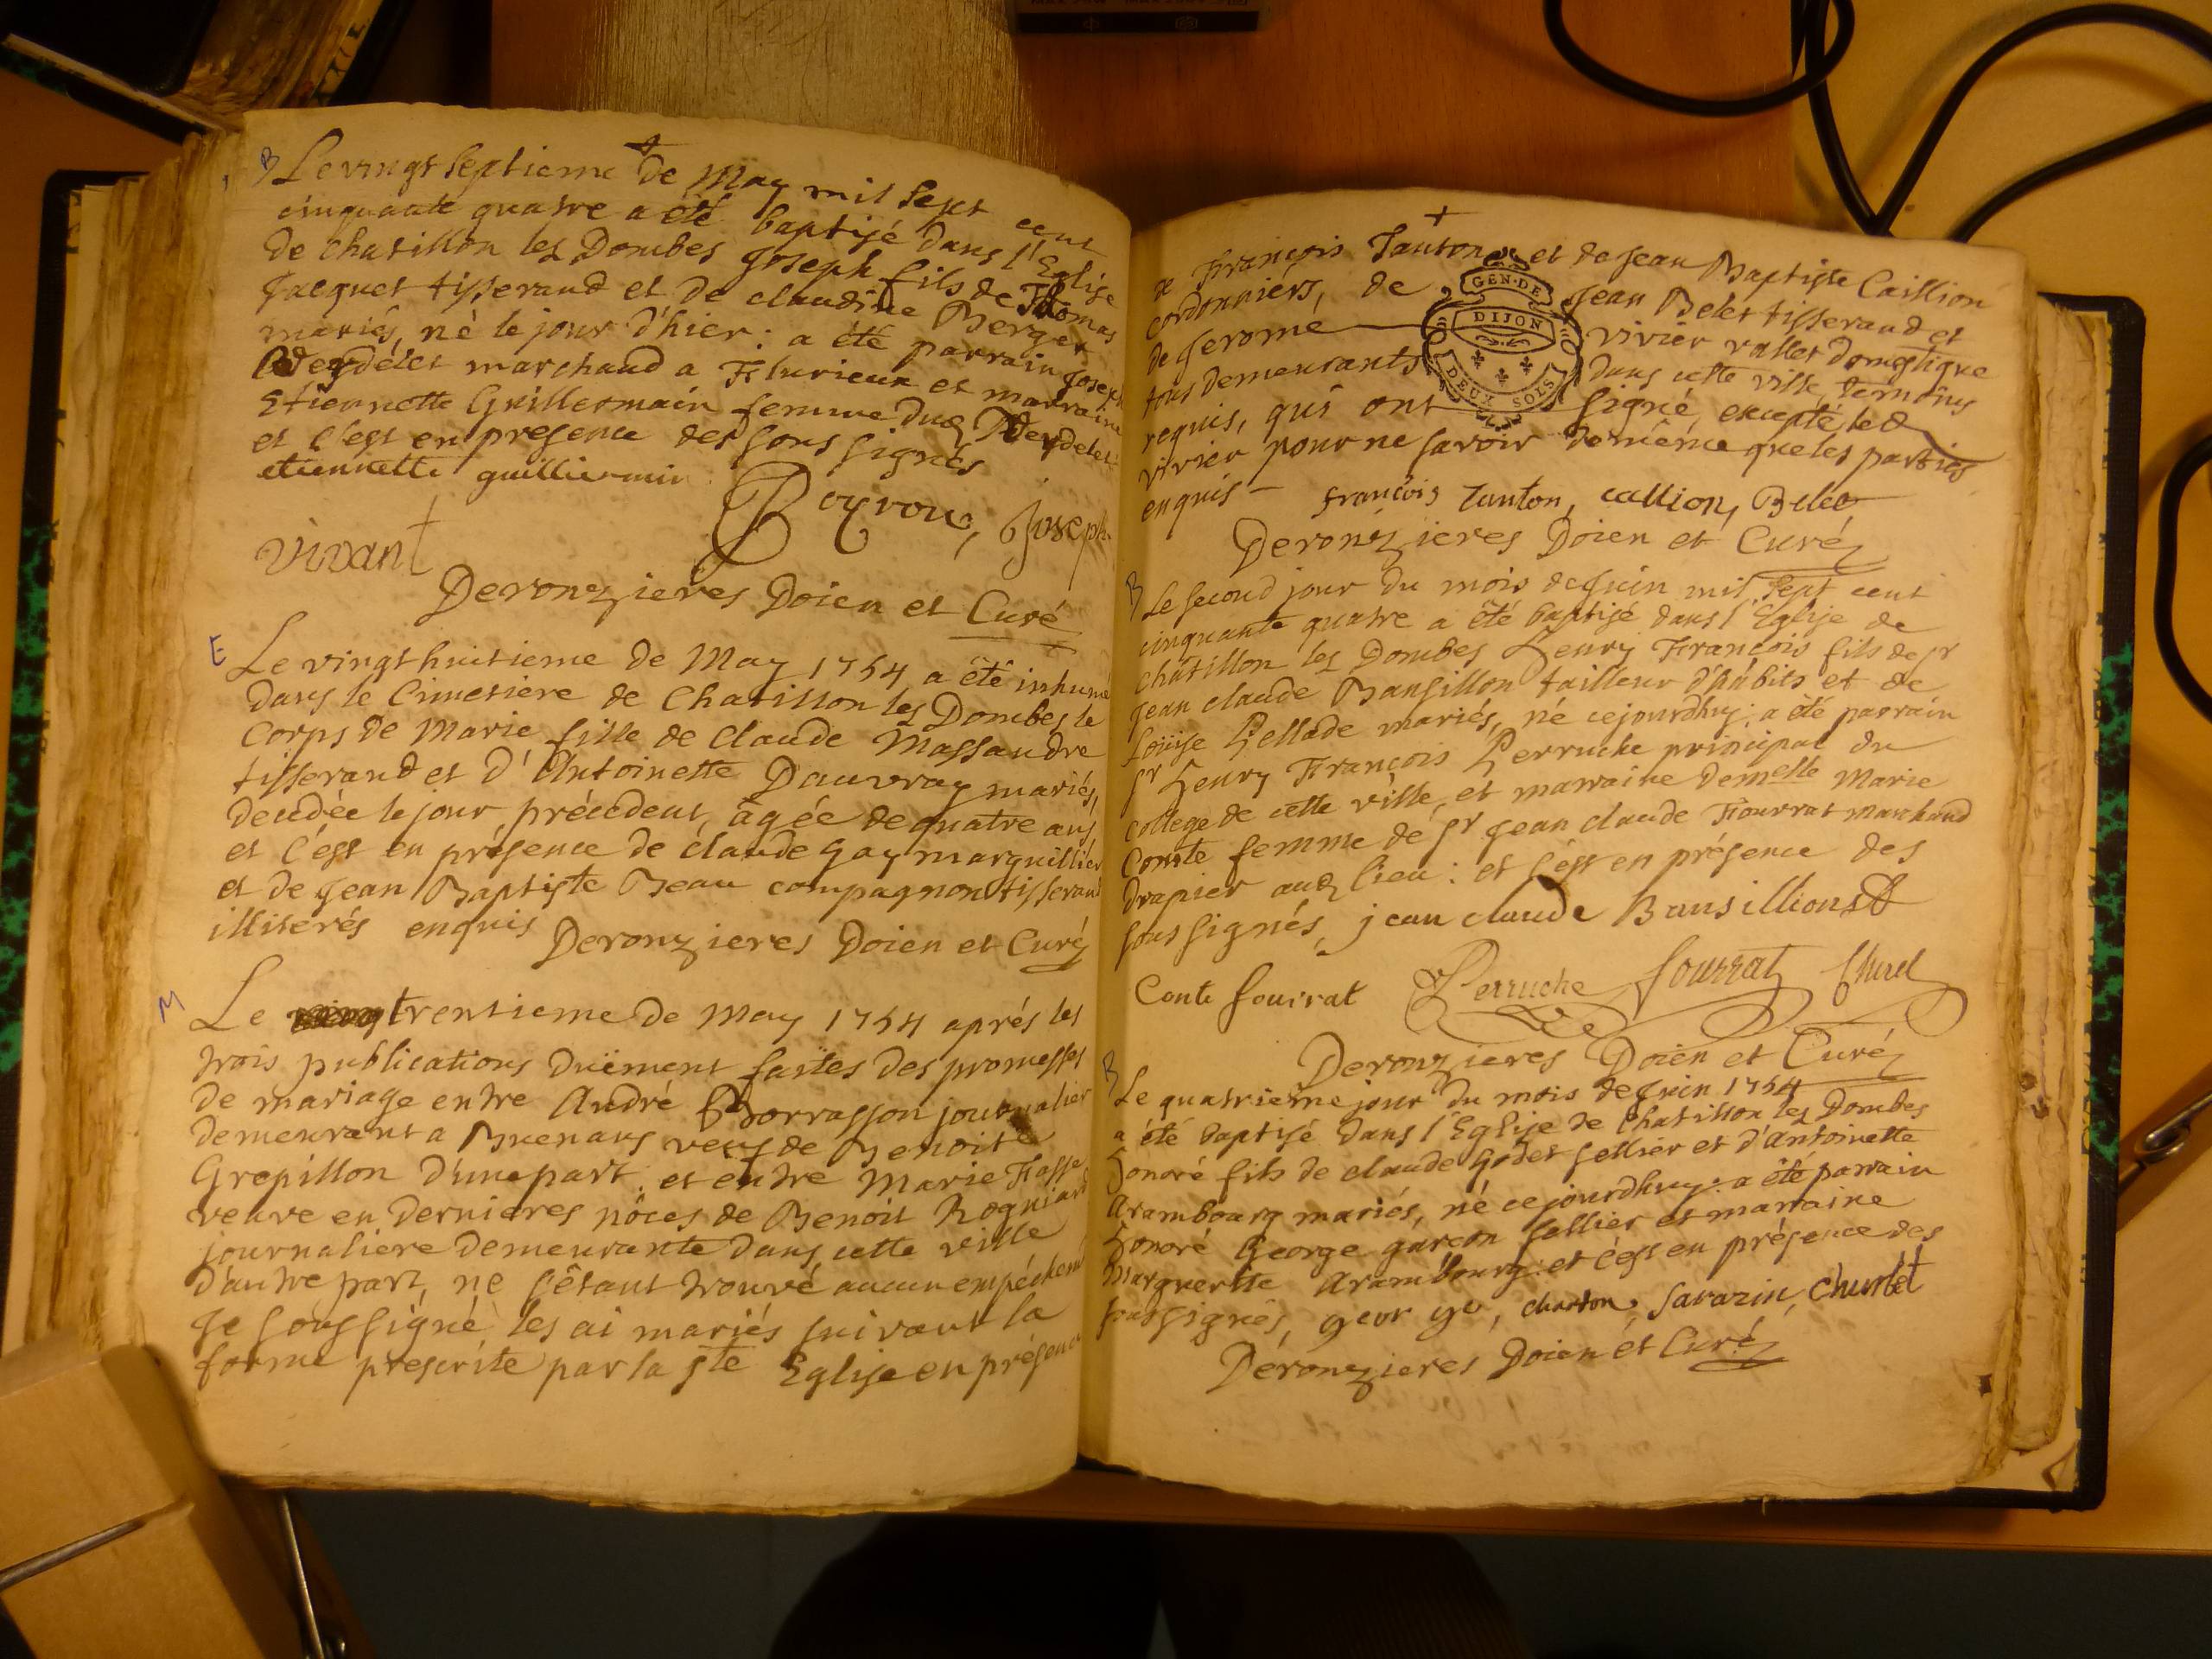 B Le vingt septieme de May mil sept cent
cinquante quatre a été baptisé dans l'Eglise
de chatillon les Dombes Joseph fils de Thomas
Jacquet tisserand et de claudine Berger
mariés, né le jour d'hier : a été parrain Joseph
marchand a Flurieux et marraine
Etiennette Guillermain femme dud
et c'est en presence des soussignés
etiennette guilliermin
Boyron, Joseph
vivant
Deronzieres Doien et Curé
E Le vingt huitieme de May 1754 a été inhumé
dans le Cimetiere de Chatillon les Dombes le
Corps de Marie fille de claude Massandre
tisserand et d'Antoinette Dauvray mariés,
decedée le jour précedent, âgée de quatre ans
et c'est en présence de claude Gay marguillier
et de Jean Baptiste Beau compagnon tisserand
illiterés enquis Deronzieres Doien et Curé
M Le trentieme de May 1754 aprés les
trois publications düement faites des promesses
de mariage entre André Borrasson journalier
demeurant a Buenans veuf de Benoite
Grepillon d'une part ; et entre Marie Fasse
veuve en dernieres nôces de Benoit Rogniard
journaliere demeurante dans cette ville
d'autre part, ne s'étant trouvé aucun empéchement
Je soussigné les ai mariés suivant la
forme prescrite par la ste Eglise en présence
de François Tanton et de Jean Baptiste Caillion
cordonniers, de Jean Belet tisserand et
de Jerome vivier vallet domestique
tous demeurants dans cette ville, temoins
requis, qui ont signé, excepté led
vivier pour ne savoir de même que les parties
enquis - françois Tanton, callion, Belet
GEN. DE
DIJON
DEUX SOLS
Deronzieres Doien et Curé
B Le second jour du mois de Juin mil sept cent
cinquante quatre a été baptisé dans l'Eglise de
châtillon les Dombes Henry François fils de sr
Jean claude Bansillon tailleur d'habits et de
Loüise Pellade mariés, né cejourdhuy ; a été parrain
sr Henry François Perruche principal du
college de cette ville, et marraine demelle Marie
Comte femme de sr Jean claude Fourrat marchand
drapier aud lieu : et c'est en présence des
soussignés, jean claude Bansillion
Conte fourrat Perruche fourrat Churlet
Deronzieres Doien et Curé
B Le quatrieme jour du mois de Juin 1754
a été baptisé dans l'Eglise de Chatillon les Dombes
Honoré fils de claude Godet sellier et d'Antoinette
Arambourg mariés, né cejourdhuy : a été parrain
Honoré George garçon sellier et marraine
Marguerite Arambourg : et c'est en présence des
soussignés, geor ge, charton, Savarin, Churlet
Deronzieres Doien et Curé